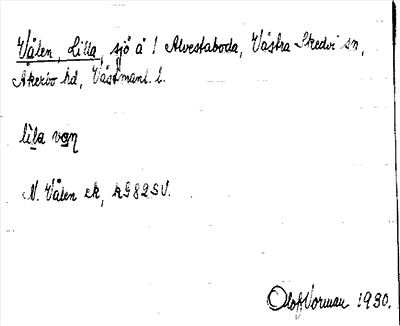 Vålen, Lilla, sjö å ! Alvestaboda, Västra Skedvi sn,
Åkerbo hd, Västmanl. l.
lìla van
N. Vålen ek, kG82SV.
Olof Vorman 1930.